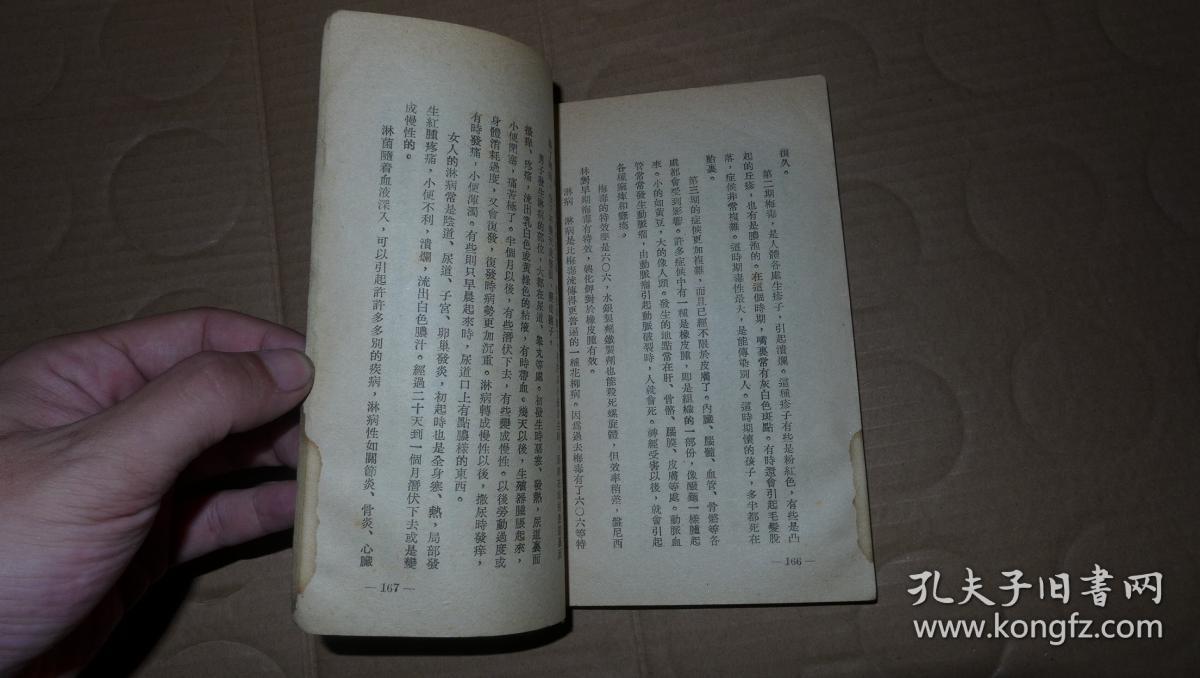 很久。
第二期梅毒，是人體各處生疹子，引起潰爛。這種疹子有些是粉紅色，有些是凸
起的丘疹，也有是膿泡的。在這個時期，嘴裏常有灰白色斑點。有時還會引起毛髮脫
落，症候非常複雜。這時期毒性最大，是能傳染別人。這時期懷的孩子，多半都死在
胎裏。
第三期的症候更加複雜，而且已經不限於皮膚了。內臟、腦髓、血管、骨骼等各
處都會受到影響。許多症候中有一種是橡皮腫，即是組織的一部份，像醱麵一樣腫起
來。小的如黃豆，大的像人頭。發生的地點常在肝、骨骼、腦膜、皮膚等處。動脈血
管常常發生動脈瘤，由動脈瘤引起動脈破裂時，人就會死。神經受害以後，就會引起
各種痲痺和癱瘓。
梅毒的特效藥是六〇六，水銀製劑鉍製劑也能殺死螺旋體，但效率稍差，盤尼西
林對早期梅毒有特效，碘化鉀對於橡皮腫有效。
淋病 淋病是比梅毒流傳得更普遍的一種花柳病。因爲過去梅毒有了六〇六等特
— 166 —
男子發生淋病的部位，大都在尿道、睾丸等處。初發生時惡寒、發熱，尿道裏面
搔癢、疼痛，流出乳白色或黃綠色的粘液，有時帶血。幾天以後，生殖器腫脹起來，
小便閉塞，痛苦極了。半個月以後，有些潛伏下去，有些變成慢性。以後勞動過度或
身體消耗過度，又會復發，復發時病勢更加沉重。淋病轉成慢性以後，撒尿時發痒，
有時發痛，小便渾濁。有些則只早晨起來時，尿道口上有點膿樣的東西。
女人的淋病常是陰道、尿道、子宮、卵巢發炎，初起時也是全身寒、熱，局部發
生紅腫疼痛，小便不利，潰爛，流出白色膿汁。經過二十天到一個月潛伏下去或是變
成慢性的。
淋菌隨着血液深入，可以引起許許多多別的疾病，淋病性如關節炎、骨炎、心臟
— 167 —
孔夫子旧书网
www.kongfz.com